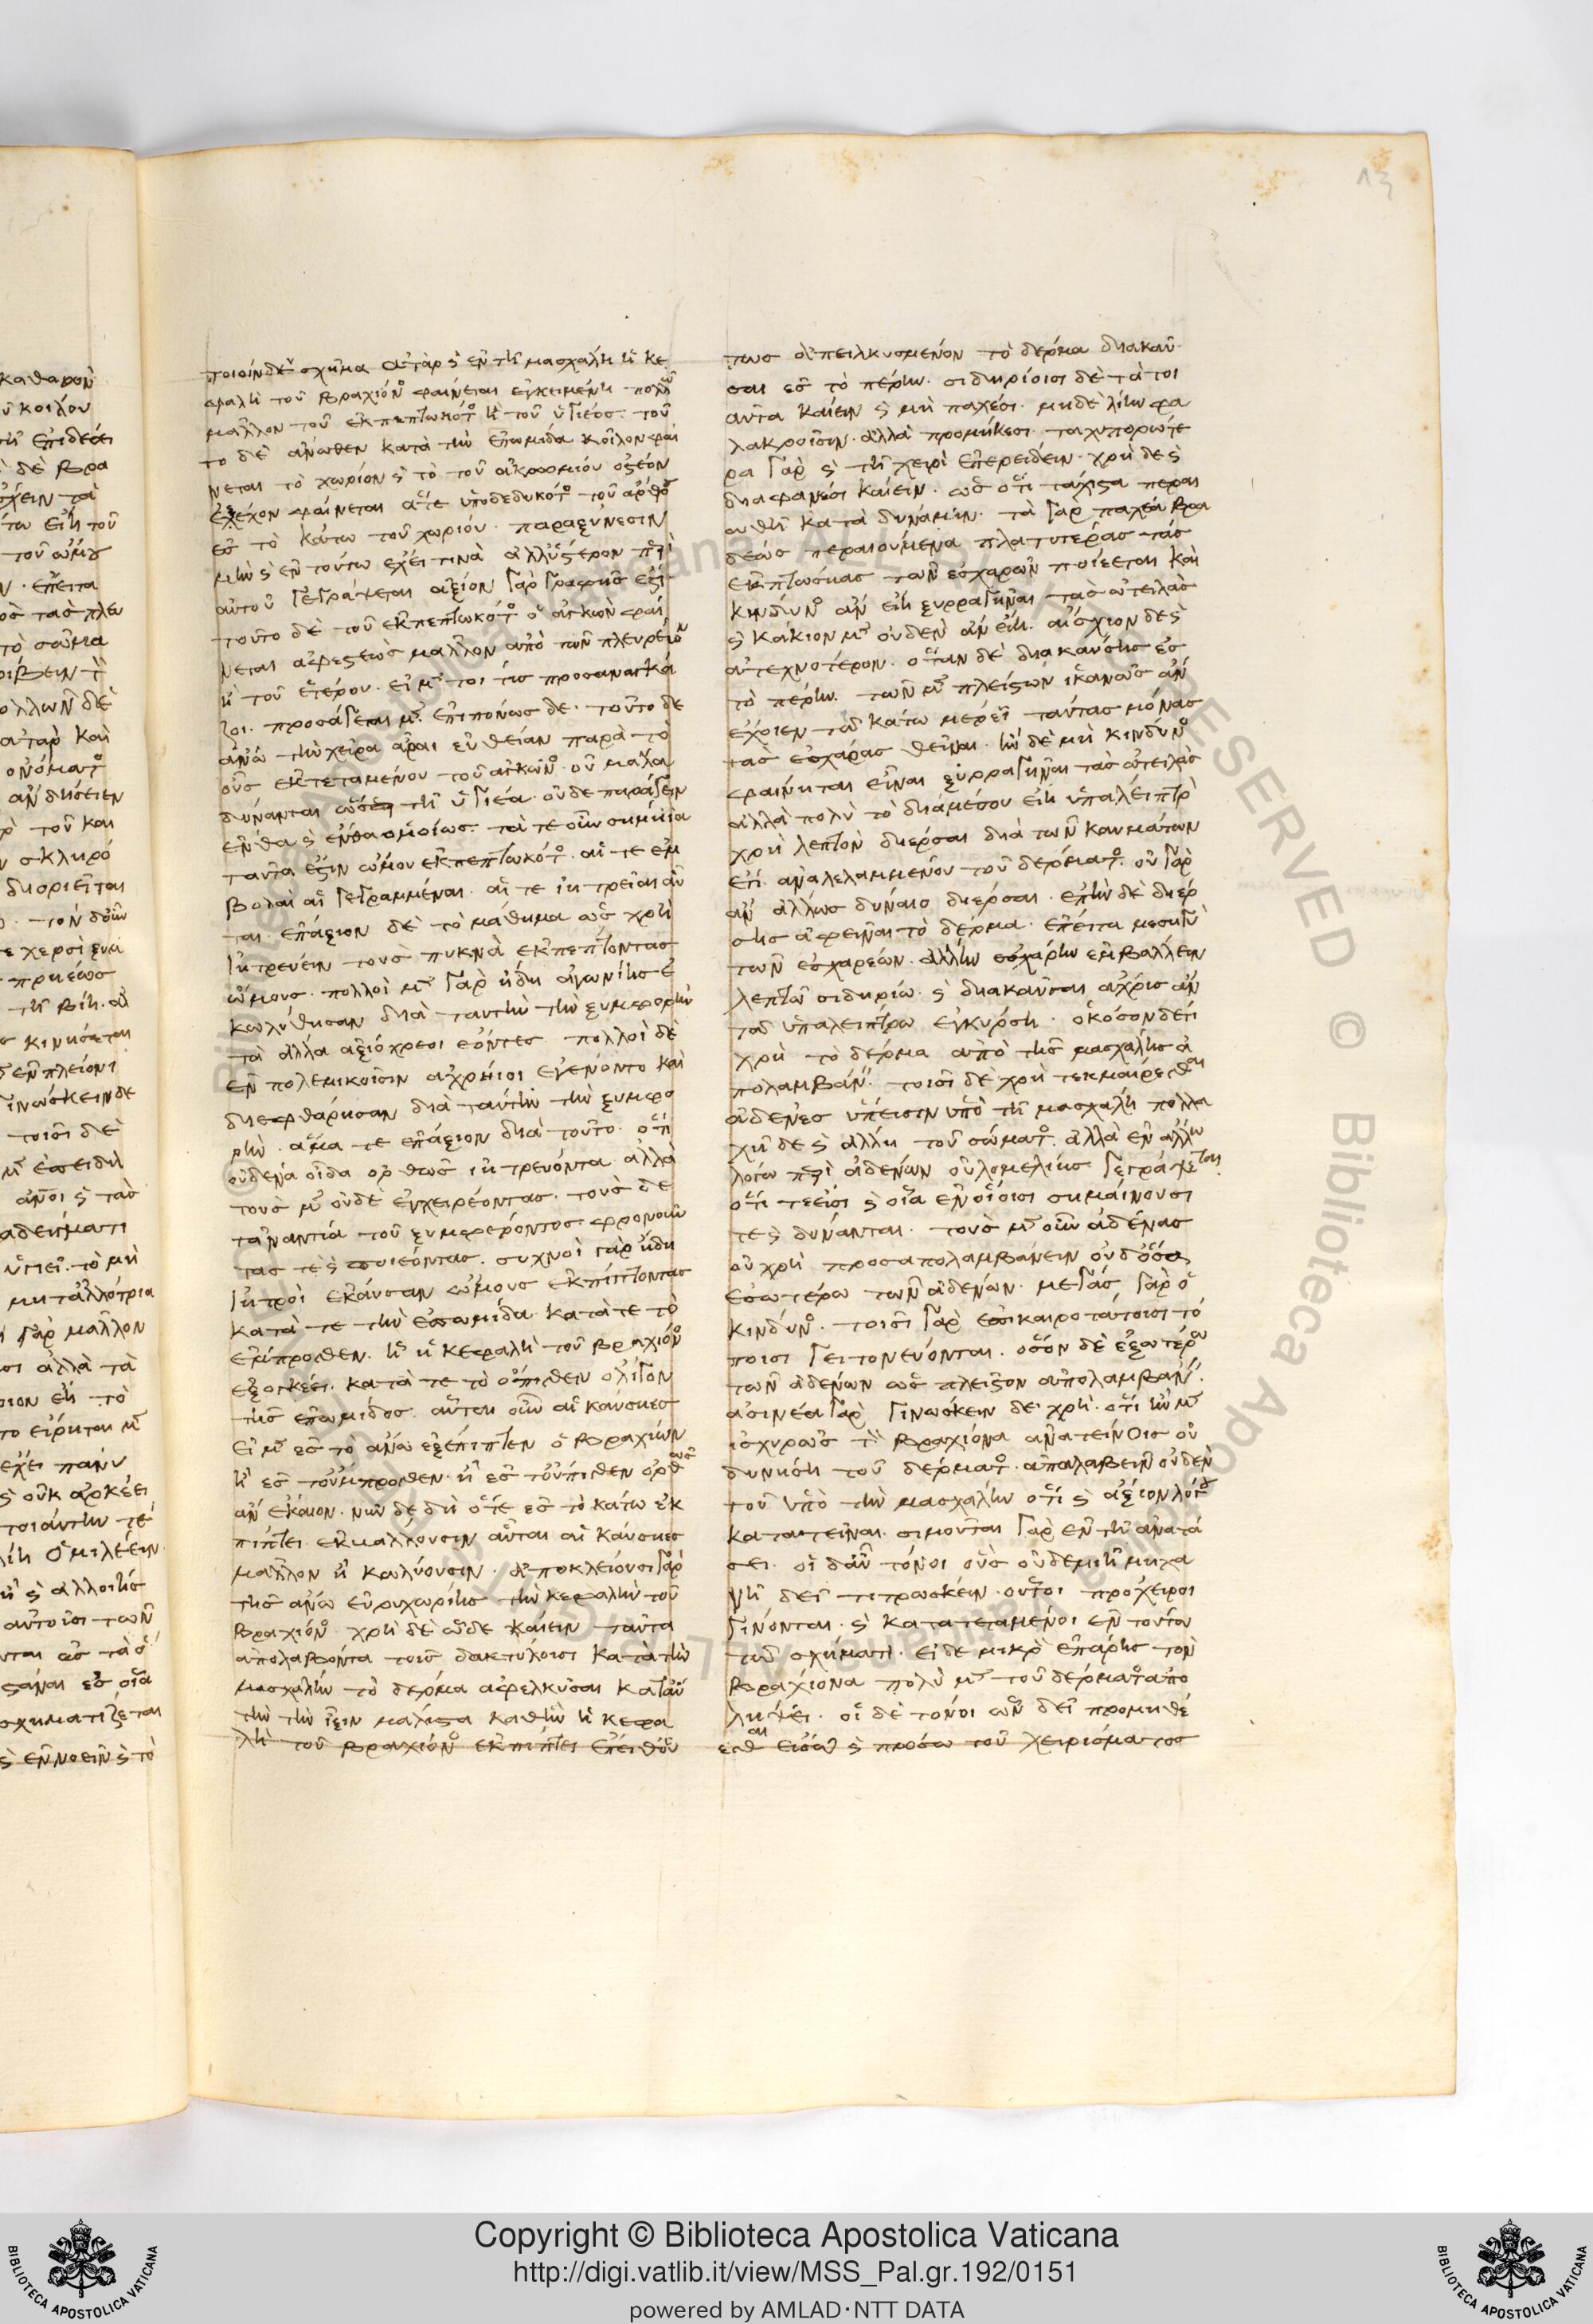 καθαρὸν
κοῖλον
ἐπιδέσει
δὲ βρα
σχεῖν τὰ
εἴη τοῦ
τοῦ ὤμου
ἔπειτα
τὸ σῶμα
τρίβειν
πολλῶν δὲ
ἀτὰρ καὶ
ὀνόματος
ἂν δήσειεν
τοῦ και
σκληρὸ
χερσὶ ξυμ
πρηέως
τῆ βίη. ἀλ
κινήσεται
γινώσκειν δὲ
τοῖσι δὲ
μὲν ἐπειδὴ
ὑγιεῖ. τὸ μὴ
μὴ τἀλλότρια
γὰρ μᾶλλον
ἀλλὰ τὰ
εἴη τὸ
εἴρηται μὲν
ἔχει πάνυ
οὐκ ἀρκέει
τοιαύτην τε
ὁμιλέειν
καὶ ἀλλοίης
αὐτοῖσι τῶν
σχηματίζεται
καὶ ἐννοεῖν καὶ τὸ
ποιοίνδε σχῆμα ἀτὰρ καὶ ἐν τῆ μασχάλη ἡ κε
φαλὴ τοῦ βραχίονος φαίνεται ἐγκειμένη πολλῶ
μᾶλλον τοῦ ἐκπεπτωκότος ἢ τοῦ ὑγιέος. τοῦ
το δὲ ἄνωθεν κατὰ τὴν ἐπωμίδα κοῖλον φαί
νεται τὸ χωρίον καὶ τὸ τοῦ ἀκρωμίου ὀστέον
ἐξέχον φαίνεται ἅτε ὑποδεδυκότος τοῦ ἄρθρου
ἐς τὸ κάτω τοῦ χωρίου. παραξύνεσιν
μὴν καὶ ἐν τούτω ἔχει τινὰ ἀλλ' ὕστερον περὶ
αὐτοῦ γεγράψεται ἄξιον γὰρ γραφῆς ἐστι
τοῦτο δὲ τοῦ ἐκπεπτωκότος ὁ ἀγκὼν φαί
νεται ἀφεστεὼς μᾶλλον ἀπὸ τῶν πλευρέων
ἢ τοῦ ἑτέρου. εἰ μέν τοι τις προσαναγκά
ζοι. προσάγεται μὲν. ἐπιπόνως δέ. τοῦτο δὲ
ἄνω τὴν χεῖρα ἆραι εὐθεῖαν παρὰ τὸ
οὖς ἐκτεταμένου τοῦ ἀγκῶνος. οὐ μάλα
δύνανται ὥσπερ τὴν ὑγιέα. οὐδὲ παράγειν
ἔνθα καὶ ἔνθα ὁμοίως. τά τε οὖν σημήϊα
ταῦτά ἐστιν ὤμου ἐκπεπτωκότος. αἵ τε ἐμ
βολαὶ αἱ γεγραμμέναι. αἵ τε ἰητρεῖαι αὗ
ται. ἐπάξιον δὲ τὸ μάθημα ὡς χρὴ
ἰητρεύειν τοὺς πυκνὰ ἐκπίπτοντας
ὤμους. πολλοὶ μὲν γὰρ ἤδη ἀγωνίης ἐ
κωλύθησαν διὰ ταύτην τὴν ξυμφορὴν
τὰ ἄλλα ἀξιόχρεοι ἐόντες. πολλοὶ δὲ
ἐν πολεμικοῖσιν ἀχρήϊοι ἐγένοντο καὶ
διεφθάρησαν διὰ ταύτην τὴν ξυμφο
ρὴν. ἅμα τε ἐπάξιον διὰ τοῦτο. ὅτι
οὐδένα οἶδα ὀρθῶς ἰητρεύοντα ἀλλὰ
τοὺς μὲν οὐδὲ ἐγχειρέοντας. τοὺς δὲ
τἀναντία τοῦ ξυμφέροντος φρονοῦν
τας τὲ καὶ ποιέοντας. συχνοὶ γὰρ ἤδη
ἰητροὶ ἔκαυσαν ὤμους ἐκπίπτοντας
κατά τε τὴν ἐπωμίδα κατά τε τὸ
ἔμπροσθεν. ἧ ἡ κεφαλὴ τοῦ βραχίονος
ἐξογκέει. κατά τε τὸ ὄπισθεν ὀλίγον
τῆς ἐπωμίδος. αὗται οὖν αἱ καύσιες
εἰ μὲν ἐς τὸ ἄνω ἐξέπιπτεν ὁ βραχίων
ἢ ἐς τοὔμπροσθεν. ἢ ἐς τοὔπισθεν ὀρθῶς
ἂν ἔκαιον. νῦν δὲ δὴ ὅτε ἐς τὸ κάτω ἐκ
πίπτει. ἐκβάλλουσιν αὗται αἱ καύσιες
μᾶλλον ἢ κωλύουσιν. ἀποκλείουσι γὰρ
τῆς ἄνω εὐρυχωρίης τὴν κεφαλὴν τοῦ
βραχίονος. χρὴ δὲ ὧδε καίειν ταῦτα
ἀπολαβόντα τοῖς δακτύλοισι κατὰ τὴν
μασχάλην τὸ δέρμα ἀφελκύσαι κατ' αὐ
τὴν τὴν ἴξιν μάλιστα καθ' ἣν ἡ κεφα
λὴ τοῦ βραχίονος ἐκπίπτει ἔπειθ' οὕ
τως ἀπειλκυσμένον τὸ δέρμα διακαῦ
σαι ἐς τὸ πέρην. σιδηρίοισι δὲ τὰ τοι
αῦτα καίειν καὶ μὴ παχέσι. μηδὲ λίην φα
λακροῖσιν. ἀλλὰ προμήκεσι. ταχυπορώτε
ρα γὰρ καὶ τῆ χειρὶ ἐπερείδειν. χρὴ δὲ καὶ
διαφανέσι καίειν. ὡς ὅτι τάχιστα περαι
ωθῆ κατὰ δύναμιν. τὰ γὰρ παχέα βρα
δέως περαιούμενα πλατυτέρας τὰς
ἐκπτώσιας τῶν ἐσχαρῶν ποιέεται καὶ
κίνδυνος ἂν εἴη ξυρραγῆναι τὰς ὠτειλὰς
καὶ κάκιον μὲν οὐδὲν ἂν εἴη. αἴσχιον δὲ καὶ
ἀτεχνότερον. ὅταν δὲ διακαύσης ἐς
τὸ πέρην. τῶν μὲν πλείστων ἱκανῶς ἂν
ἔχοιεν τῶ κάτω μέρεϊ ταύτας μόνας
τὰς ἐσχάρας θεῖναι. ἢν δὲ μὴ κίνδυνος
φαίνηται εἶναι ξυρραγῆναι τὰς ὠτειλὰς
ἀλλὰ πολὺ τὸ διάμεσον εἴη ὑπάλειπτρον
χρὴ λεπτὸν διέρσαι διὰ τῶν καυμάτων
ἔτι ἀναλελαμμένου τοῦ δέρματος. οὐ γὰρ
ἂν ἄλλως δύναιο διέρσαι. ἐπὴν δὲ διέρ
σης ἀφεῖναι τὸ δέρμα. ἔπειτα μεσηγὺ
τῶν ἐσχαρέων. ἄλλην ἐσχάρην ἐμβάλλειν
λεπτῶ σιδηρίω. καὶ διακαῦσαι ἄχρις ἂν
τῶ ὑπαλείπτρω ἐγκύρση. ὁκόσον δέ τι
χρὴ τὸ δέρμα ἀπὸ τῆς μασχάλης ἀ
πολαμβάνειν. τοῖσι δὲ χρὴ τεκμαίρεσθαι
ἀδένες ὕπεισιν ὑπὸ τῆ μασχάλη πολλα
χῆ δὲ καὶ ἄλλη τοῦ σώματος. ἀλλὰ ἐν ἄλλω
λόγω περὶ ἀδένων οὐλομελίης γεγράψεται.
ὅτι τέ εἰσι καὶ οἷα ἐν οἵοισι σημαίνουσί
τε καὶ δύνανται. τοὺς μὲν οὖν ἀδένας
οὐ χρὴ προσαπολαμβάνειν οὐδ' ὅσα
ἐσωτέρω τῶν ἀδένων. μέγας γὰρ ὁ
κίνδυνος. τοῖσι γὰρ ἐπικαιροτάτοισι τό
ποισι γειτονεύονται. ὅσον δὲ ἐξωτέρω
τῶν ἀδένων ὡς πλεῖστον ἀπολαμβάνειν.
ἀσινέα γὰρ γινώσκειν δὲ χρὴ. ὅτι ἢν μὲν
ἰσχυρῶς τὸν βραχίονα ἀνατείνοις οὐ
δυνήση τοῦ δέρματος ἀπολαβεῖν οὐδὲν
τοῦ ὑπὸ τὴν μασχάλην ὅτι καὶ ἄξιον λόγου
καταντεῖναι. σιμοῦται γὰρ ἐν τῆ ἀνατά
σει. οἱ δ' αὖ τόνοι οὓς οὐδεμιῆ μηχα
νῆ δεῖ τιτρώσκειν. οὗτοι πρόχειροι
γίνονται. καὶ κατατεταμένοι ἐν τούτω
τῶ σχήματι. εἰ δὲ μικρὸν ἐπάρης τὸν
βραχίονα πολὺ μὲν τοῦ δέρματος ἀπο
λήψει. οἱ δὲ τόνοι ὧν δεῖ προμηθέ
εσθαι εἴσω καὶ πρόσω τοῦ χειρίσματος
Copyright © Biblioteca Apostolica Vaticana
http://digi.vatlib.it/view/MSS_Pal.gr.192/0151
powered by AMLAD·NTT DATA
BIBLIOTECA APOSTOLICA VATICANA
BIBLIOTECA APOSTOLICA VATICANA